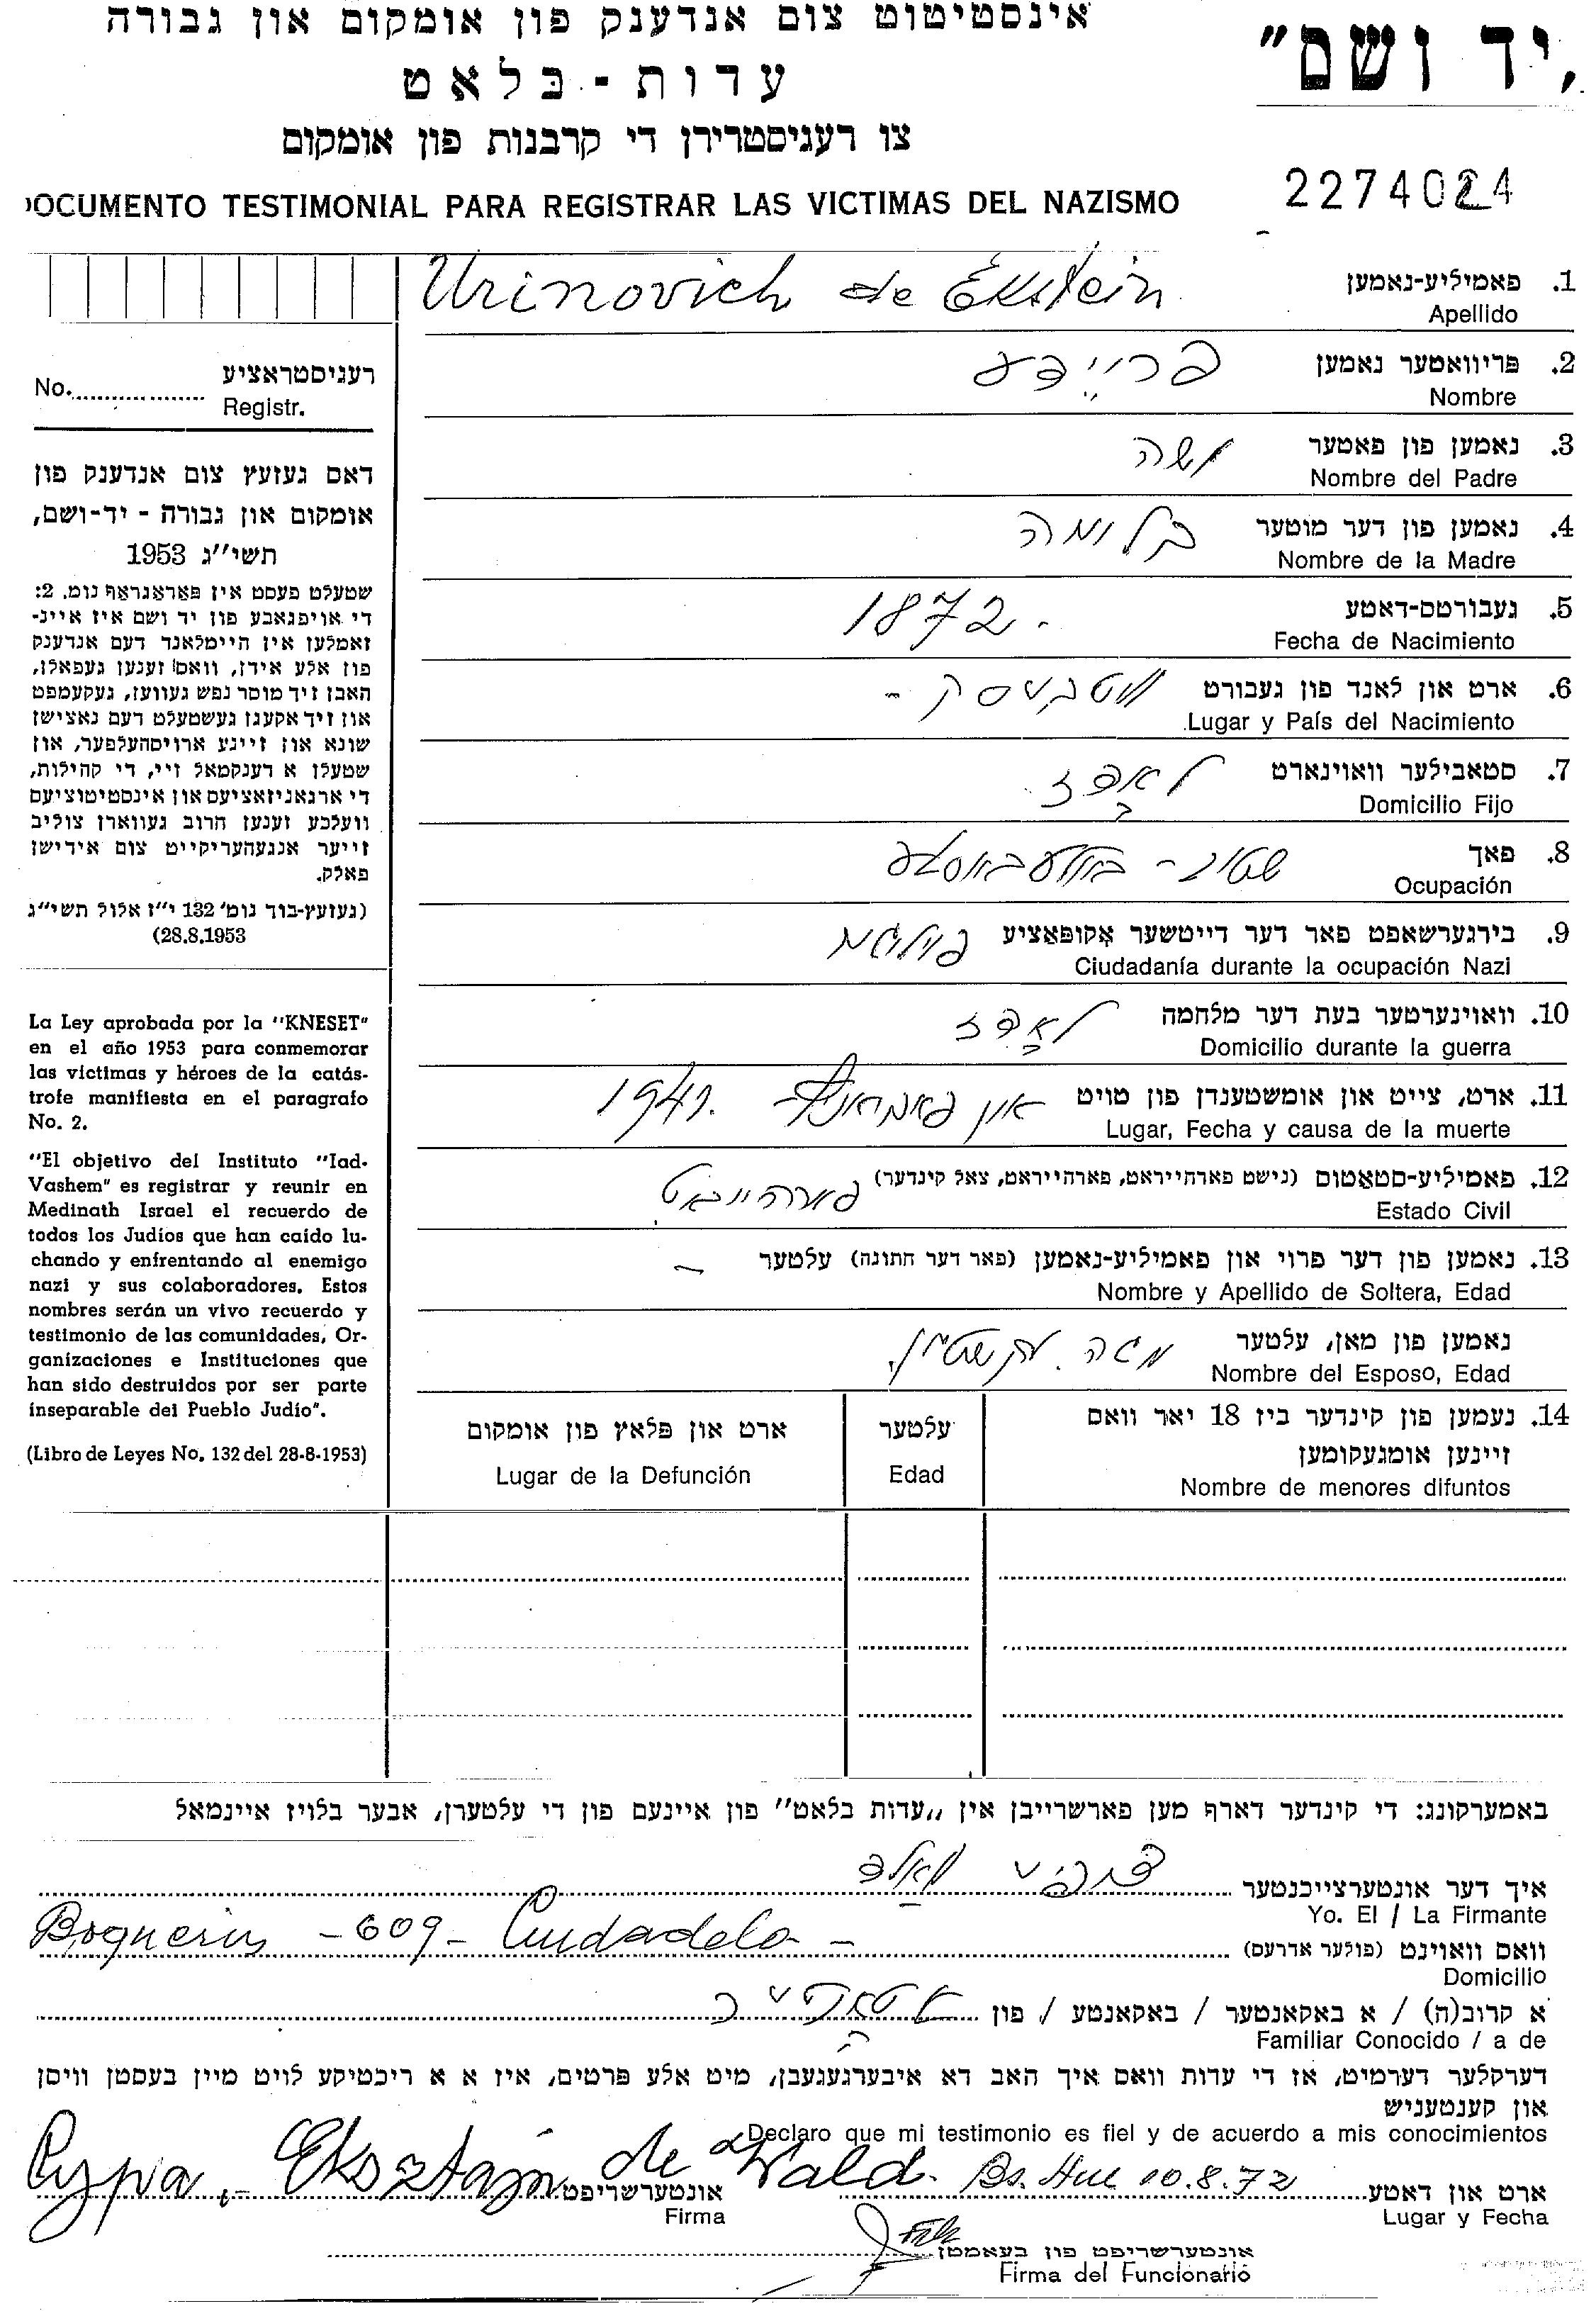 אינסטיטוט צום אנדענק פון אומקום און גבורה
„יד ושם"
עדות-בלאט
צו רעגיסטרירן די קרבנות פון אומקום
DOCUMENTO TESTIMONIAL PARA REGISTRAR LAS VICTIMAS DEL NAZISMO
2274024
1. פאמיליע-נאמען
Apellido
Urinovich de Ekstein
2. פריוואטער נאמען
Nombre
פריידע
3. נאמען פון פאטער
Nombre del Padre
משה
4. נאמען פון דער מוטער
Nombre de la Madre
בלומה
5. געבורטס-דאטע
Fecha de Nacimiento
1872.
6. ארט און לאנד פון געבורט
Lugar y País del Nacimiento
7. סטאבילער וואוינארט
Domicilio Fijo
לאדז
8. פאך
Ocupación
שטוב-באלעבאסטע
9. בירגערשאפט פאר דער דייטשער אָקופּאַציע
Ciudadanía durante la ocupación Nazi
10. וואוינערטער בעת דער מלחמה
Domicilio durante la guerra
לאדז
11. ארט, צייט און אומשטענדן פון טויט
Lugar, Fecha y causa de la muerte
אין 1941.
12. פאמיליע-סטאַטוס (נישט פארהייראט, פארהייראט, צאל קינדער)
Estado Civil
פארהייראט
13. נאמען פון דער פרוי און פאמיליע-נאמען (פאר דער חתונה) עלטער
Nombre y Apellido de Soltera, Edad
–
נאמען פון מאן, עלטער
Nombre del Esposo, Edad
עקשטיין
14. נעמען פון קינדער ביז 18 יאר וואס
זיינען אומגעקומען
Nombre de menores difuntos
עלטער
Edad
ארט און פלאץ פון אומקום
Lugar de la Defunción
רעגיסטראציע
No. Registr.
דאס געזעץ צום אנדענק פון
אומקום און גבורה - יד-ושם,
תשי"ג 1953
שטעלט פעסט אין פּאַראַגראַף נומ. 2:
די אויפגאבע פון יד ושם איז איינ-
זאמלען אין היימלאנד דעם אנדענק
פון אלע אידן, וואס זענען געפאלן,
האבן זיך מוסר נפש געווען, געקעמפט
און זיך אקעגן געשטעלט דעם נאצישן
שונא און זיינע ארויסהעלפער, און
שטעלן א דענקמאל זיי, די קהילות,
די ארגאניזאציעס און אינסטיטוציעס
וועלכע זענען חרוב געווארן צוליב
זייער אנגעהעריקייט צום אידישן
פאלק.
(געזעץ-בוך נומ' 132 י"ז אלול תשי"ג
28.8.1953)
La Ley aprobada por la "KNESET"
en el año 1953 para conmemorar
las víctimas y héroes de la catás-
trofe manifiesta en el paragrafo
No. 2.
"El objetivo del Instituto "Iad-
Vashem" es registrar y reunir en
Medinath Israel el recuerdo de
todos los Judíos que han caído lu-
chando y enfrentando al enemigo
nazi y sus colaboradores. Estos
nombres serán un vivo recuerdo y
testimonio de las comunidades, Or-
ganizaciones e Instituciones que
han sido destruidos por ser parte
inseparable del Pueblo Judío".
(Libro de Leyes No. 132 del 28-8-1953)
באמערקונג: די קינדער דארף מען פארשרייבן אין „עדות בלאט" פון איינעם פון די עלטערן, אבער בלויז איינמאל
איך דער אונטערצייכנטער
Yo. El / La Firmante
וואלד
וואס וואוינט (פולער אדרעס)
Domicilio
Boquerin - 609 - Ciudadela -
א קרוב(ה) / א באקאנטער / באקאנטע / פון
Familiar Conocido / a de
דערקלער דערמיט, אז די עדות וואס איך האב דא איבערגעגעבן, מיט אלע פרטים, איז א א ריכטיקע לויט מיין בעסטן וויסן
און קענטעניש
Declaro que mi testimonio es fiel y de acuerdo a mis conocimientos
ארט און דאטע
Lugar y Fecha
10.8.72
אונטערשריפט
Firma
Cypra. Eksztajn de Wald.
אונטערשריפט פון בעאמטן
Firma del Funcionario